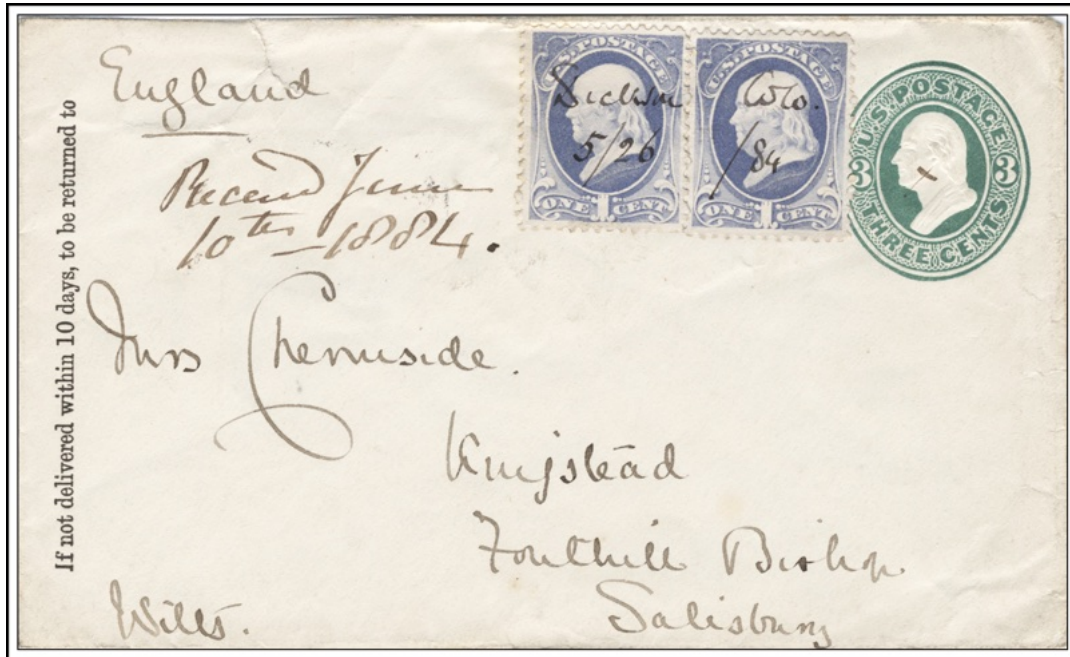 If not delivered within 10 days, to be returned to
England
Recend June
10th - 1884.
U.S. POSTAGE
Dickson
5/26
ONE CENT
U.S. POSTAGE
Colo.
/84
ONE CENT
U.S. POSTAGE
3 3
THREE CENTS
Mrs Chernside.
Knigstead
Fonthill Bishop
Salisbury
Wilts.